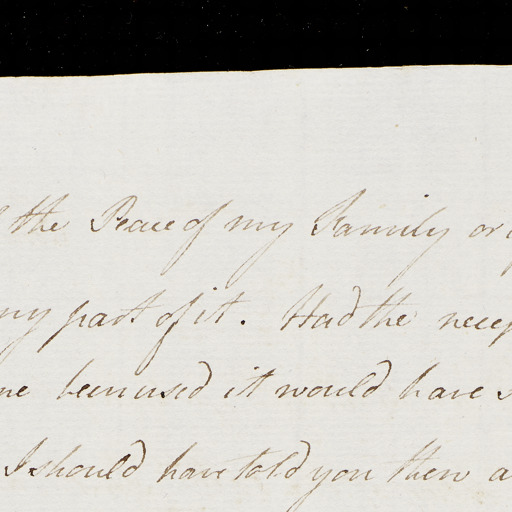 the Peace of my Family or
my part of it. Had the
me been used it would have
I should have told you then